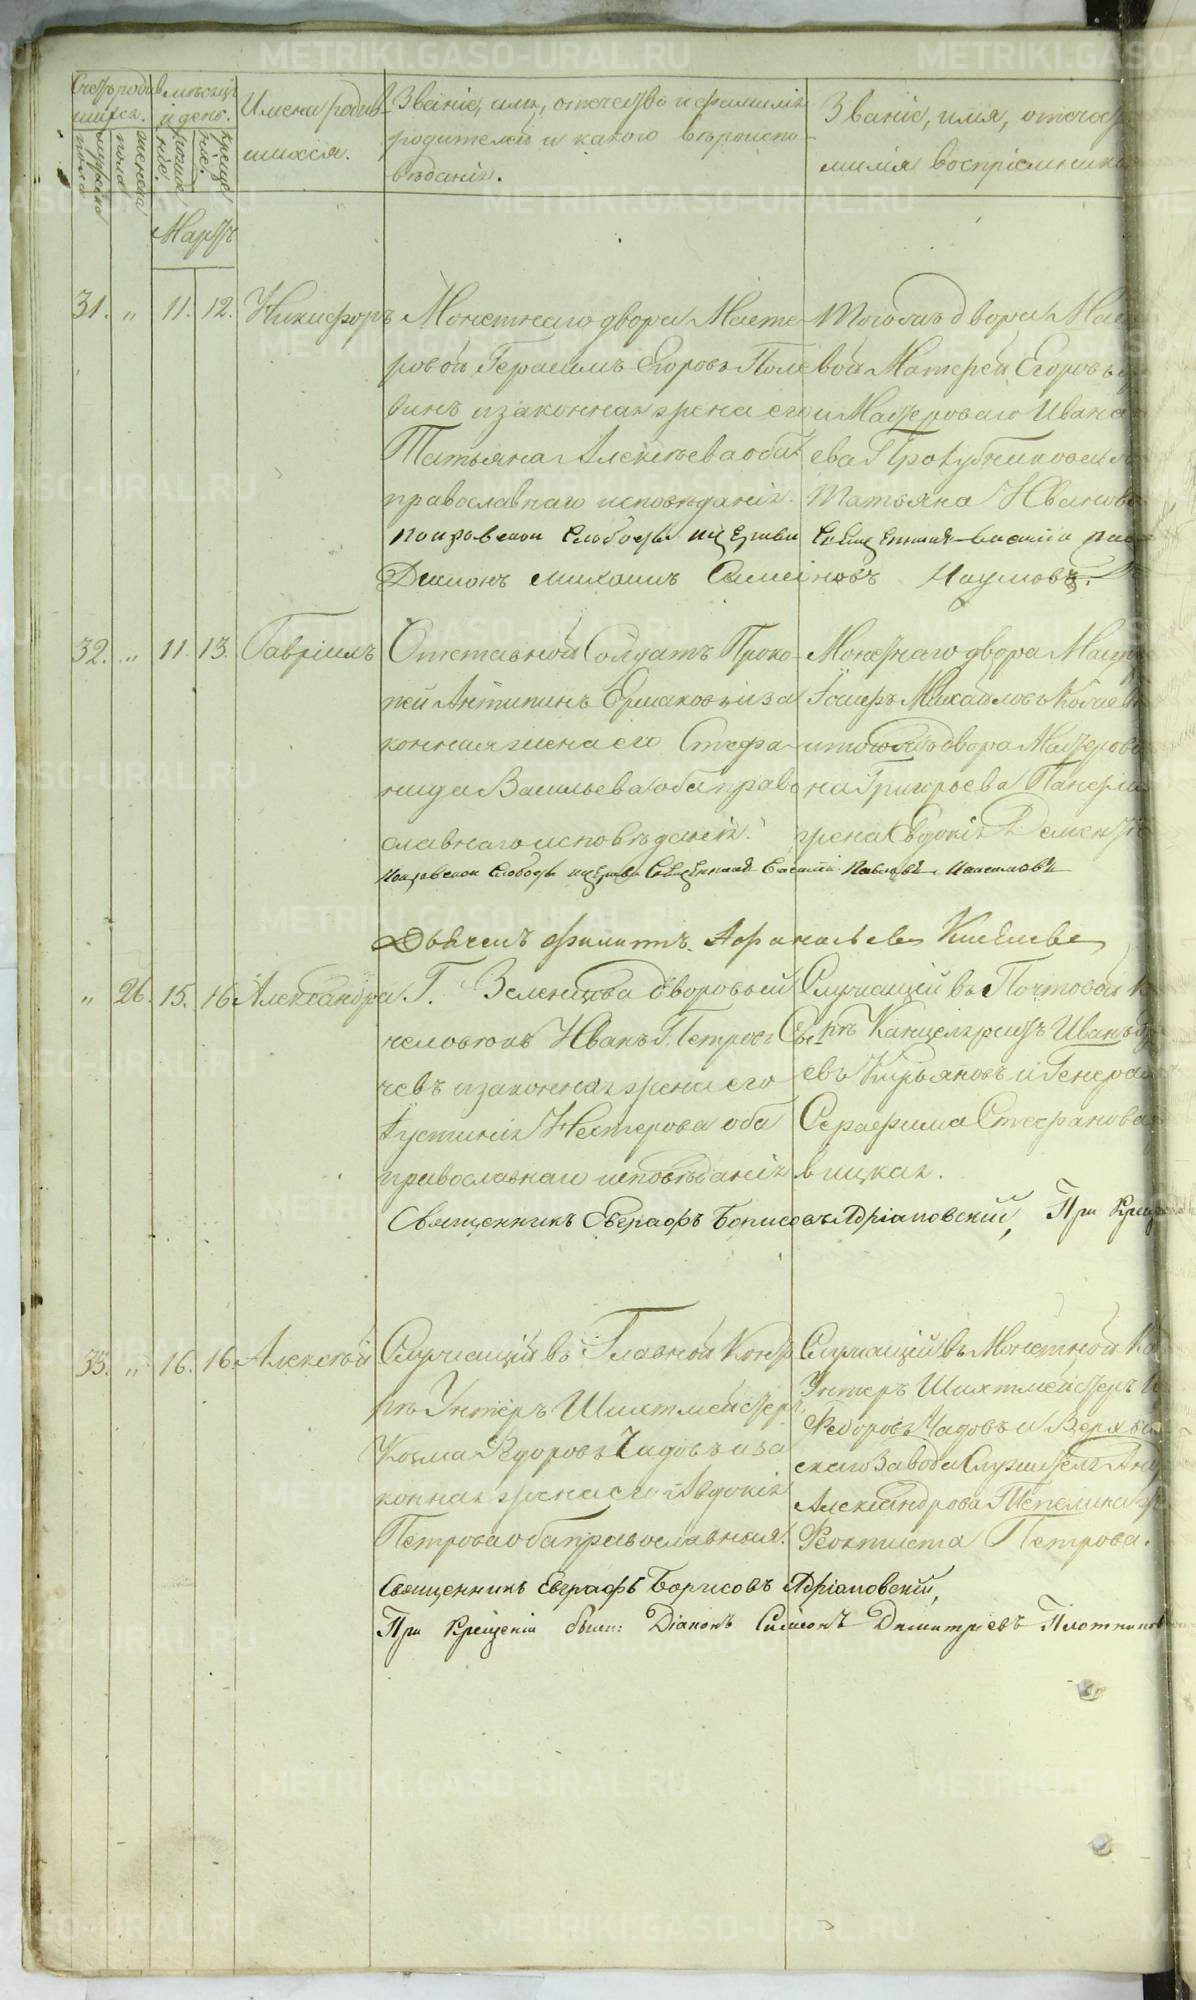 Счетъ родив
шихся.
мужеска
пола
женска
пола
Мѣсяцъ
и день.
рожде
нiе.
креще
нiе.
Имена родив-
шихся.
Званiе, имя, отчество и фамилiя
родителей и какого вѣроиспо
вѣданiя.
Званiе, имя, отчеств
милiя воспрiемник
Мартъ
31. „ 11. 12. Никифоръ
Монетнаго двора Масте-
ровой Герасимъ Егоровъ Поле
винъ и законная жена его
Татьяна Алексѣева оба
православнаго исповѣданiя.
Тогожъ двора Мас
вой Матфей Егоровъ
и Мастероваго Ивана
ева Трапубникова
Татьяна Иванова
Покровской Слободы ц Священникъ Василiй Пав
Дiаконъ Михаилъ Семеновъ Наумовъ.
32. „ 11. 13. Гаврiилъ
Отставной Солдатъ Проко-
пей Антипинъ Ермаковъ и за
конная жена его Стефа-
нида Васильева оба право
славнаго исповѣданiя.
Монетнаго двора Маст
Iосифъ Михайловъ
и тогожъ двора Мастерова
на Григорьева Панфил
жена Евдокiя Дементь
Покровской Слободы Священникъ Василiй Павловъ
Дьячекъ Филиппъ Афанасьевъ Киселевъ
„ 26. 15. 16 Александра
Г. Зеленцова дворовый
человѣкъ Иванъ Петровъ
чевъ и законная жена его
Iустинiя Нестерова оба
православнаго исповѣданiя
Служащiй въ Почтовой К
рѣ Канцеляристъ Иванъ
евъ Кирьяновъ и Генерал
Серафима Стефанова
вицкая.
Священникъ Евграфъ Борисовъ Адрiановскiй, При Крещ
33. „ 16. 16 Алексѣй
Служащiй въ Главной Конт
рѣ Унтеръ Шихтмейстеръ
Козма Ѳедоровъ Чадовъ и за
конная жена его Авдокiя
Петрова оба православныя.
Служащiй въ Монетной Ко
Унтеръ Шихтмейстеръ
Ѳедоровъ Чадовъ и Верхъ
скаго Завода Служителя
Александрова Пепелина
Ѳеоктиста Петрова.
Священникъ Евграфъ Борисовъ Адрiановскiй,
При Крещенiи были: Дiаконъ Симеонъ Димитрiевъ Плотников
METRIKI.GASO-URAL.RU